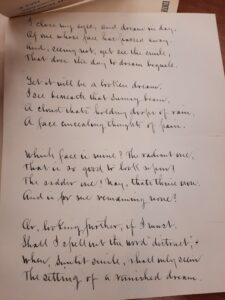 I close my eyes, and dream in day,
Of one whose face has passed away.
And, seeing not, yet see the smile,
That does the day to dream beguile.
Yet it will be a broken dream.
I see beneath that sunny beam,
A cloud that's holding drops of rain,
A face concealing thoughts of pain.
Which face is mine? The radiant one,
That is so good to look upon?
The sadder one? Nay, that's thine own.
And is for me remaining none?
Or, looking further, if I must,
Shall I spell out the word "distrust",
When, sunlit smile, shall only seem
The setting of a vanished dream.